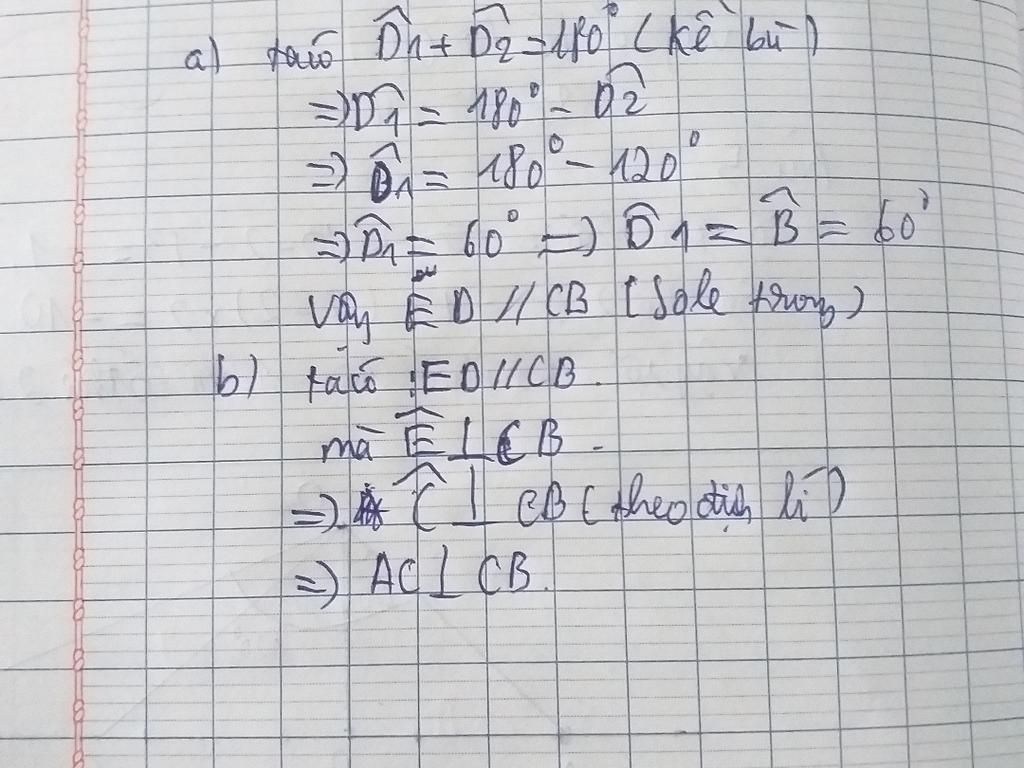 a) ta có D̂1 + D̂2 = 180° (kề bù)
=> D̂1 = 180° - D̂2
=> D̂1 = 180° - 120°
=> D̂1 = 60° => D̂1 = B̂ = 60°
Vậy ED // CB (Sole trong)
b) ta có : ED // CB.
mà Ê ⊥ CB -
=> Ĉ ⊥ CB (theo định lí)
=> AC ⊥ CB.